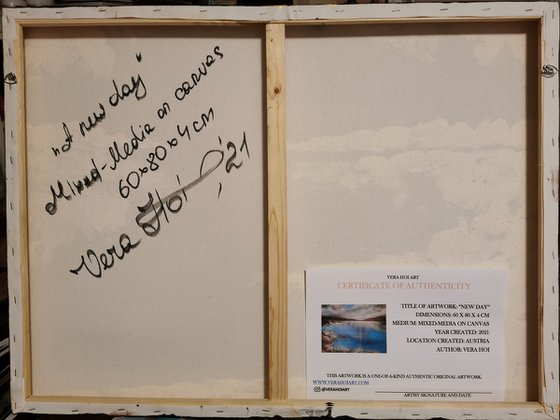 not new day"
Mixed-Media on canvas
60x80x4cm
Vera Hoi '21
VERA HOI ART
CERTIFICATE OF AUTHENTICITY
TITLE OF ARTWORK: "NEW DAY"
DIMENSIONS: 60 X 80 X 4 CM
MEDIUM: MIXED-MEDIA ON CANVAS
YEAR CREATED: 2021
LOCATION CREATED: AUSTRIA
AUTHOR: VERA HOI
THIS ARTWORK IS A ONE-OF-A-KIND AUTHENTIC ORIGINAL ARTWORK
WWW.VERAHOIART.COM
@VERAHOIART
ARTIST SIGNATURE AND DATE